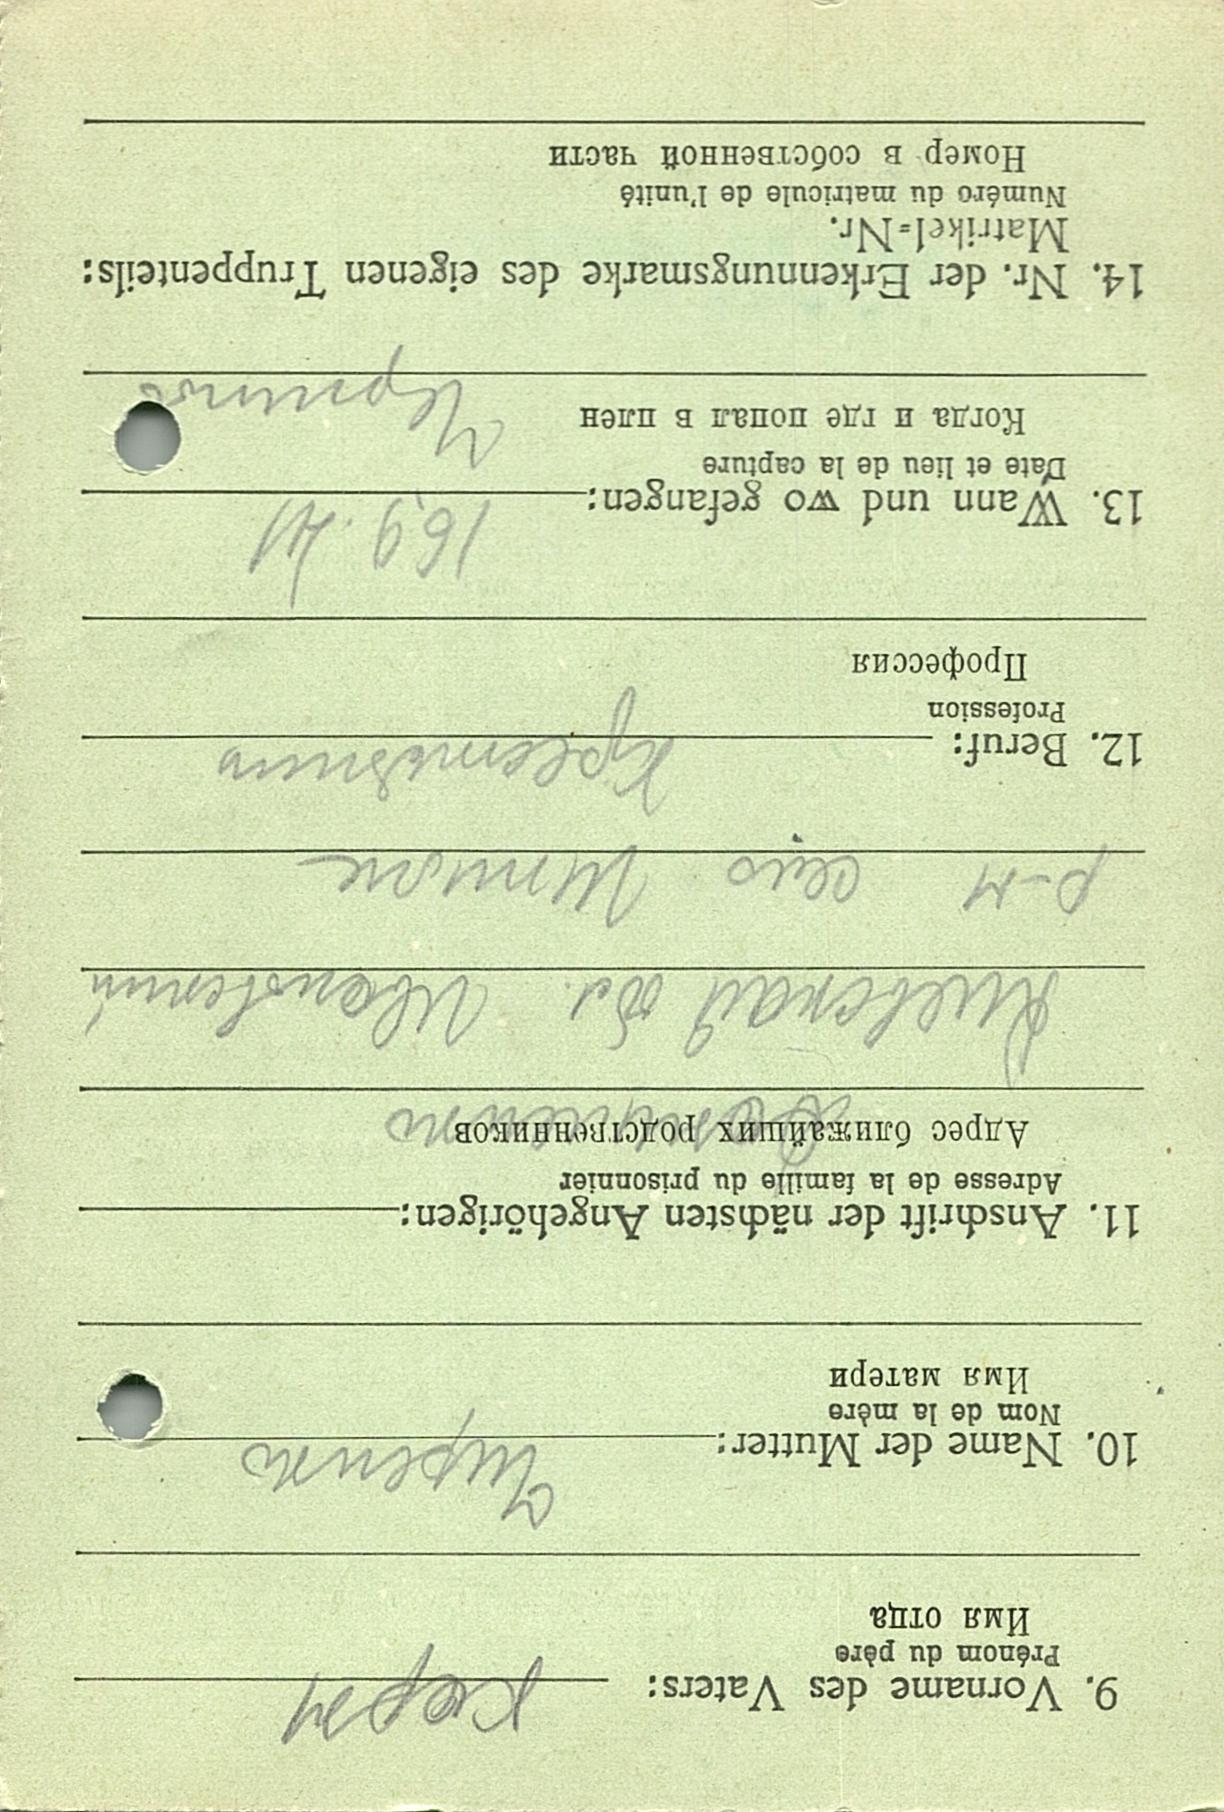 9. Vorname des Vaters:
Prénom du père
Имя отца
10. Name der Mutter:
Nom de la mère
Имя матери
11. Anschrift der nächsten Angehörigen:
Adresse de la famille du prisonnier
Адрес ближайших родственников
Киевская обл.
р-н село
12. Beruf:
Profession
Профессия
13. Wann und wo gefangen: 16,9.41
Date et lieu de la capture
Когда и где попал в плен
14. Nr. der Erkennungsmarke des eigenen Truppenteils:
Matrikel=Nr.
Numéro du matricule de l'unité
Номер в собственной части